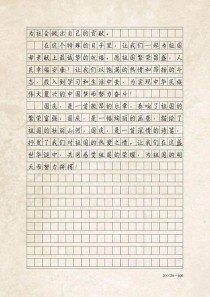 为社会做出自己的贡献。
在这个特殊的日子里，让我们一起为祖国
母亲献上最诚挚的祝福，愿祖国繁荣昌盛，人
民幸福安康！让我们以饱满的热情和昂扬的斗
志，投入到学习和生活中去，为实现中华民族
伟大复兴的中国梦而努力奋斗！
国庆，是一首激昂的乐章，奏响了祖国的
繁荣富强。国庆，是一幅绚丽的画卷，描绘了
祖国的壮丽山河。国庆，是一首深情的诗篇，
抒发了我们对祖国的热爱之情。让我们在这盛
世华诞中，共同感受祖国的荣耀，为祖国的明
天而努力拼搏！